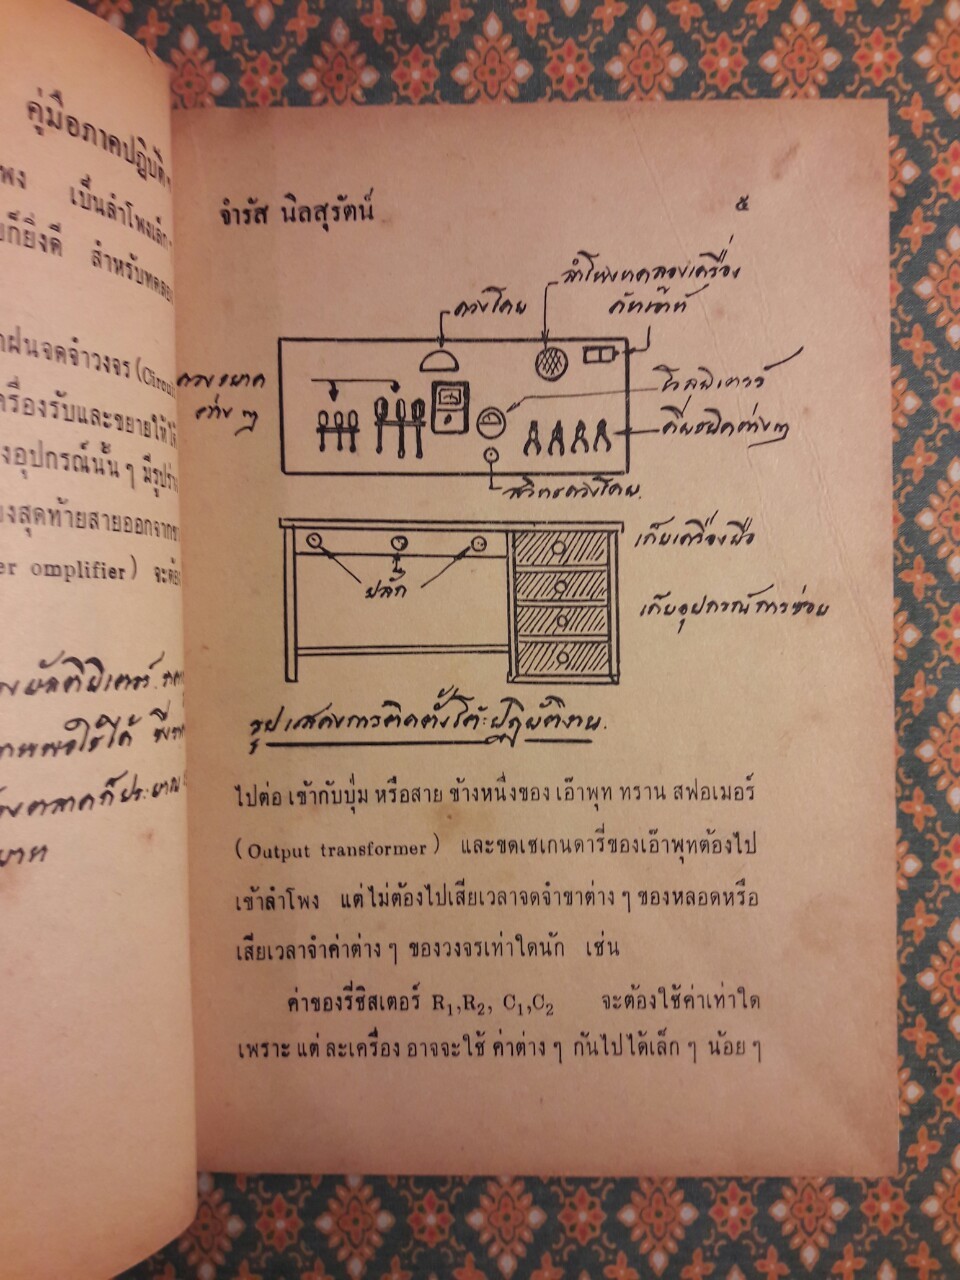 คู่มือภาคปฏิบัติ
เป็นลำโพงเล็ก
ยก็ยิ่งดี สำหรับทดลอง
ฝนจดจำวงจร (Circui
ครื่องรับและขยายให้ได้
งอุปกรณ์นั้น ๆ มีรูปร่า
งสุดท้ายสายออกจาก
er omplifier) จะต้อง
มัลติมิเตอร์
พอใช้ได้ ซึ่ง
บาท
จำรัส นิลสุรัตน์ ๕
ลำโพงทดลองเครื่อง
คัทเอ๊าท์
ดวงโคม
ต่าง ๆ
โวลมิเตอร์
คีมชนิดต่างๆ
สวิทช์ดวงโคม.
เก็บเครื่องมือ
ปลั๊ก
เก็บอุปกรณ์การซ่อม
รูปแสดงการติดตั้งโต๊ะปฏิบัติงาน.
ไปต่อ เข้ากับปุ่ม หรือสาย ข้างหนึ่งของ เอ๊าพุท ทราน สฟอเมอร์
(Output transformer) และขดเซเกนดารี่ของเอ๊าพุทต้องไป
เข้าลำโพง แต่ไม่ต้องไปเสียเวลาจดจำขาต่าง ๆ ของหลอดหรือ
เสียเวลาจำค่าต่าง ๆ ของวงจรเท่าใดนัก เช่น
ค่าของรี่ซิสเตอร์ R₁,R₂, C₁,C₂ จะต้องใช้ค่าเท่าใด
เพราะ แต่ ละเครื่อง อาจจะใช้ ค่าต่าง ๆ กันไป ได้เล็ก ๆ น้อย ๆ